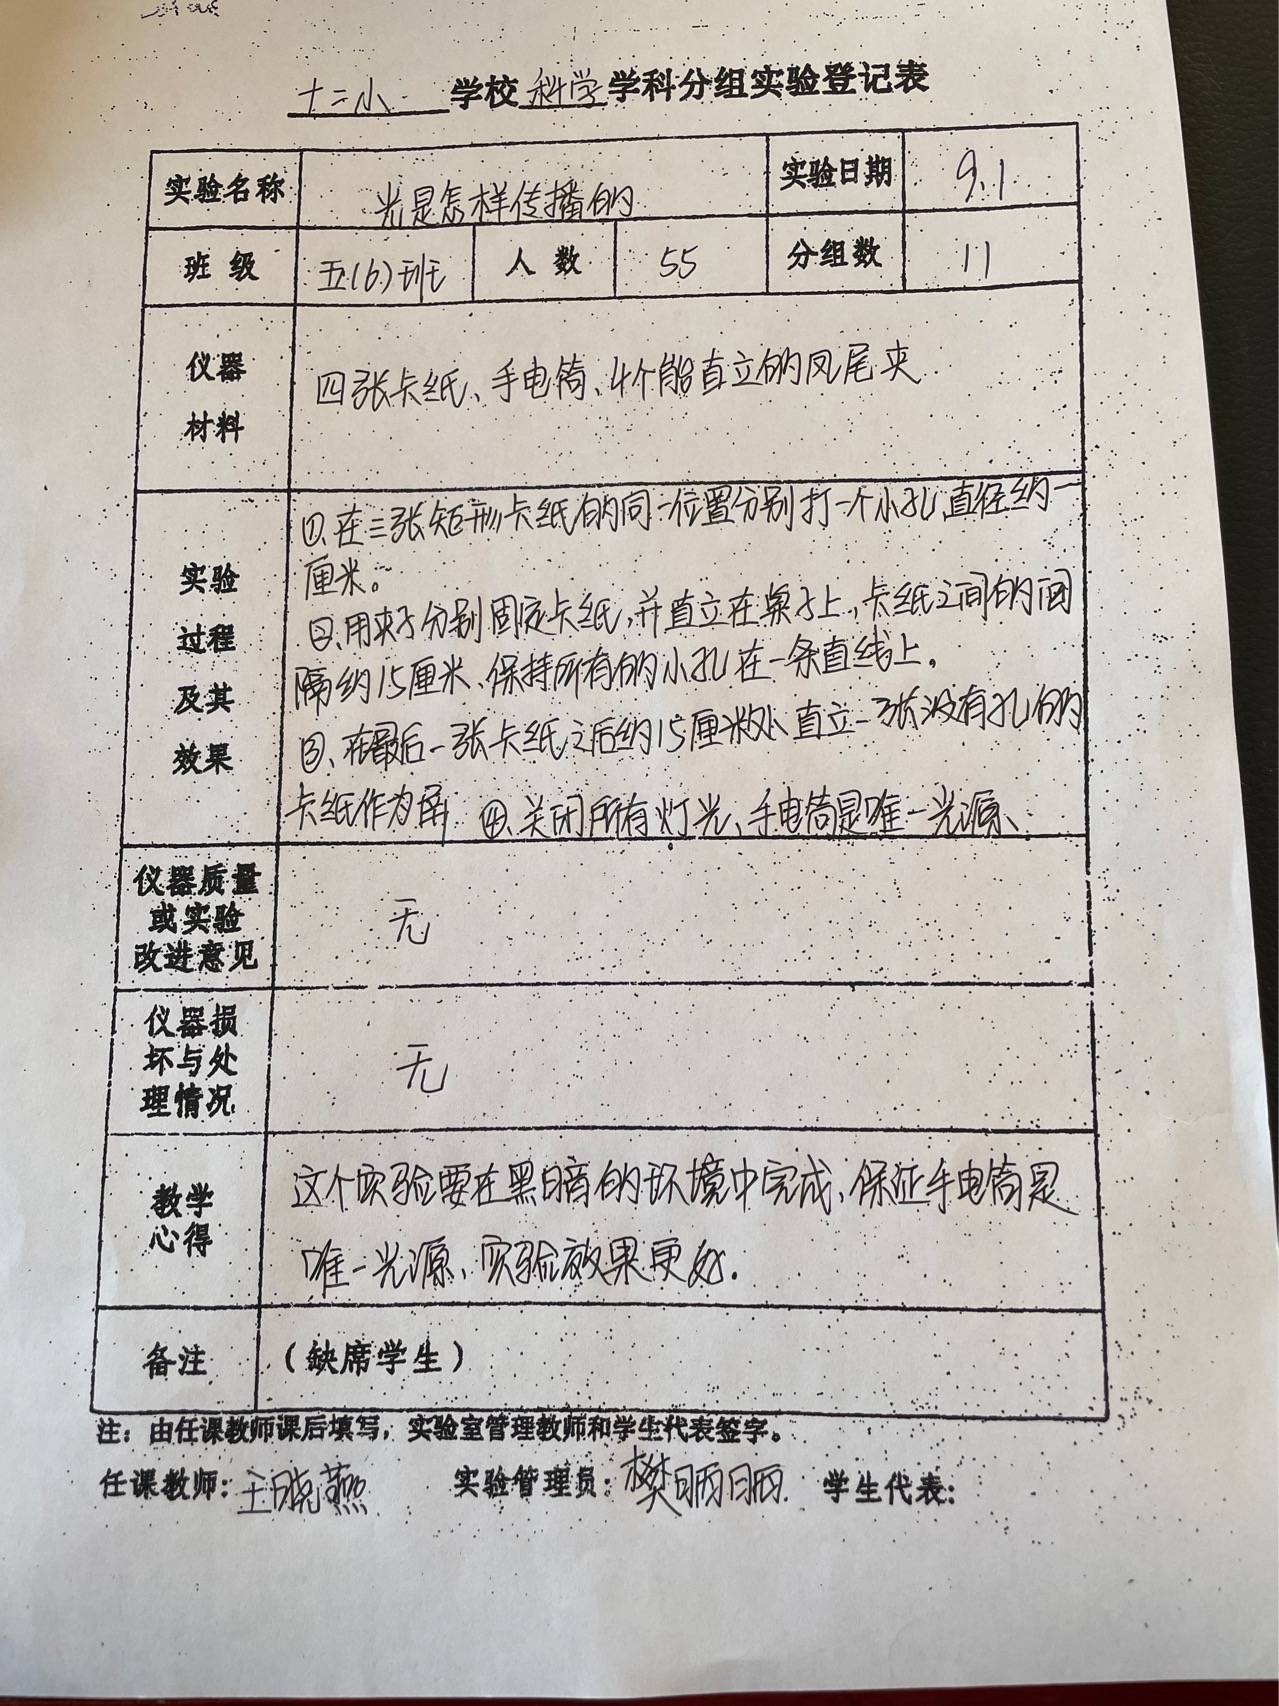 十二小 学校 科学 学科分组实验登记表
实验名称 光是怎样传播的 实验日期 9.1
班 级 五(6)班 人 数 55 分组数 11
仪器
材料
四张卡纸、手电筒、4个能直立的凤尾夹
实验
过程
及其
效果
①、在三张矩形卡纸的同一位置分别打一个小孔,直径约一
厘米。
②、用夹子分别固定卡纸,并直立在桌子上,卡纸之间的间
隔约15厘米、保持所有的小孔在一条直线上。
③、在最后一张卡纸之后约15厘米处直立一张没有孔的
卡纸作为屏 ④、关闭所有灯光、手电筒是唯一光源、
仪器质量
或实验
改进意见
无
仪器损
坏与处
理情况
无
教学
心得
这个实验要在黑暗的环境中完成、保证手电筒是
唯一光源、实验效果更好.
备注 (缺席学生)
注:由任课教师课后填写,实验室管理教师和学生代表签字。
任课教师: 王晓燕 实验管理员: 樊昞昞 学生代表: